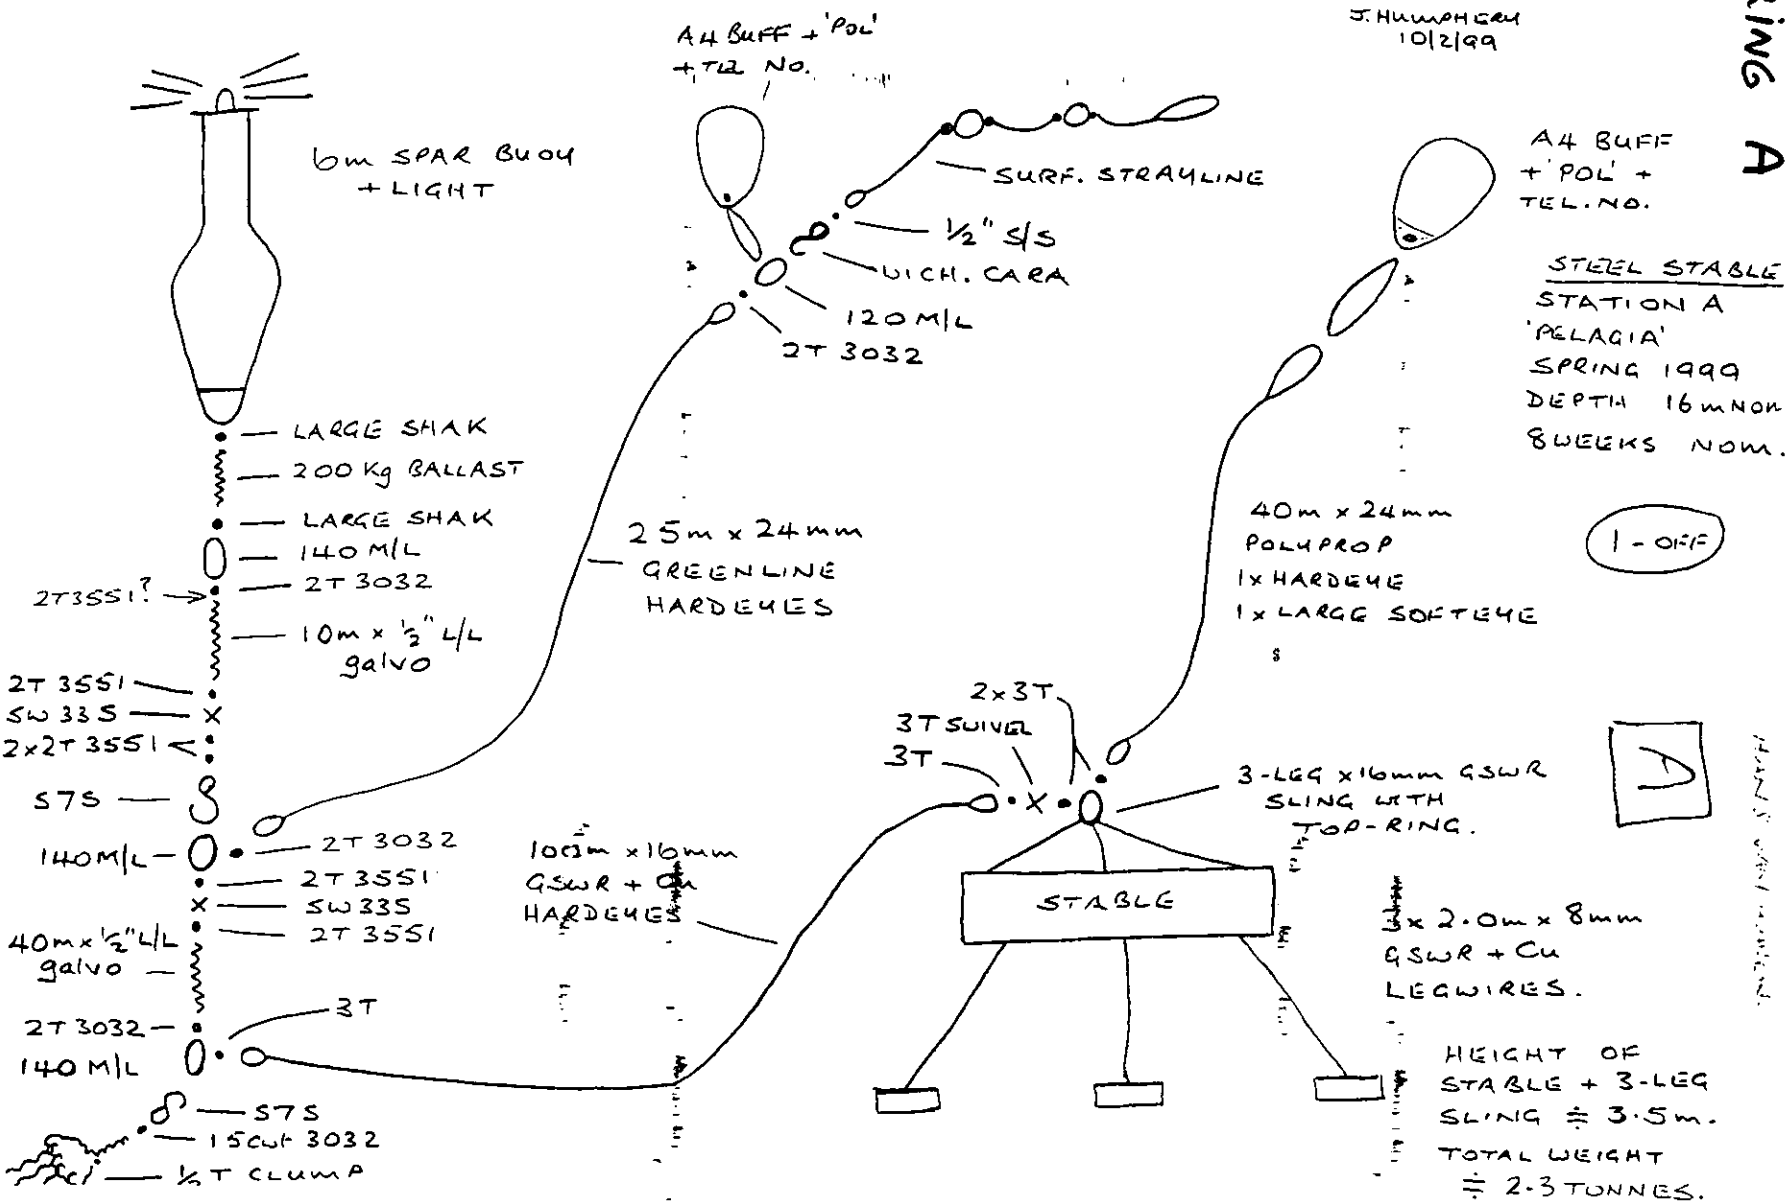 J. HUMPHERY
10/2/99
RING A
A4 BUFF + 'POL'
+ TEL NO.
6m SPAR BUOY
+ LIGHT
SURF. STRAYLINE
1/2" S/S
WICH. CARA
120 M/L
2T 3032
A4 BUFF
+ 'POL' +
TEL. NO.
STEEL STABLE
STATION A
'PELAGIA'
SPRING 1999
DEPTH 16m NOM
8 WEEKS NOM.
1-OFF
LARGE SHAK
200 Kg BALLAST
LARGE SHAK
140 M/L
2T3551?
2T 3032
10m x 1/2" L/L
galvo
2T 3551
SW 33S
2x2T 3551
S7S
140M/L
2T 3032
2T 3551
SW 33S
2T 3551
40m x 1/2" L/L
galvo
2T 3032
140 M/L
3T
S7S
15cwt 3032
1/2 T CLUMP
25m x 24mm
GREENLINE
HARDEYES
40m x 24mm
POLYPROP
1x HARDEYE
1x LARGE SOFTEYE
2x3T
3T SWIVEL
3T
3-LEG x16mm GSWR
SLING WITH
TOP-RING.
D
x16mm
GSWR + Cu
HARDEYES
STABLE
3x 2.0m x 8mm
GSWR + Cu
LEGWIRES.
HEIGHT OF
STABLE + 3-LEG
SLING ≑ 3.5m.
TOTAL WEIGHT
≑ 2.3 TONNES.